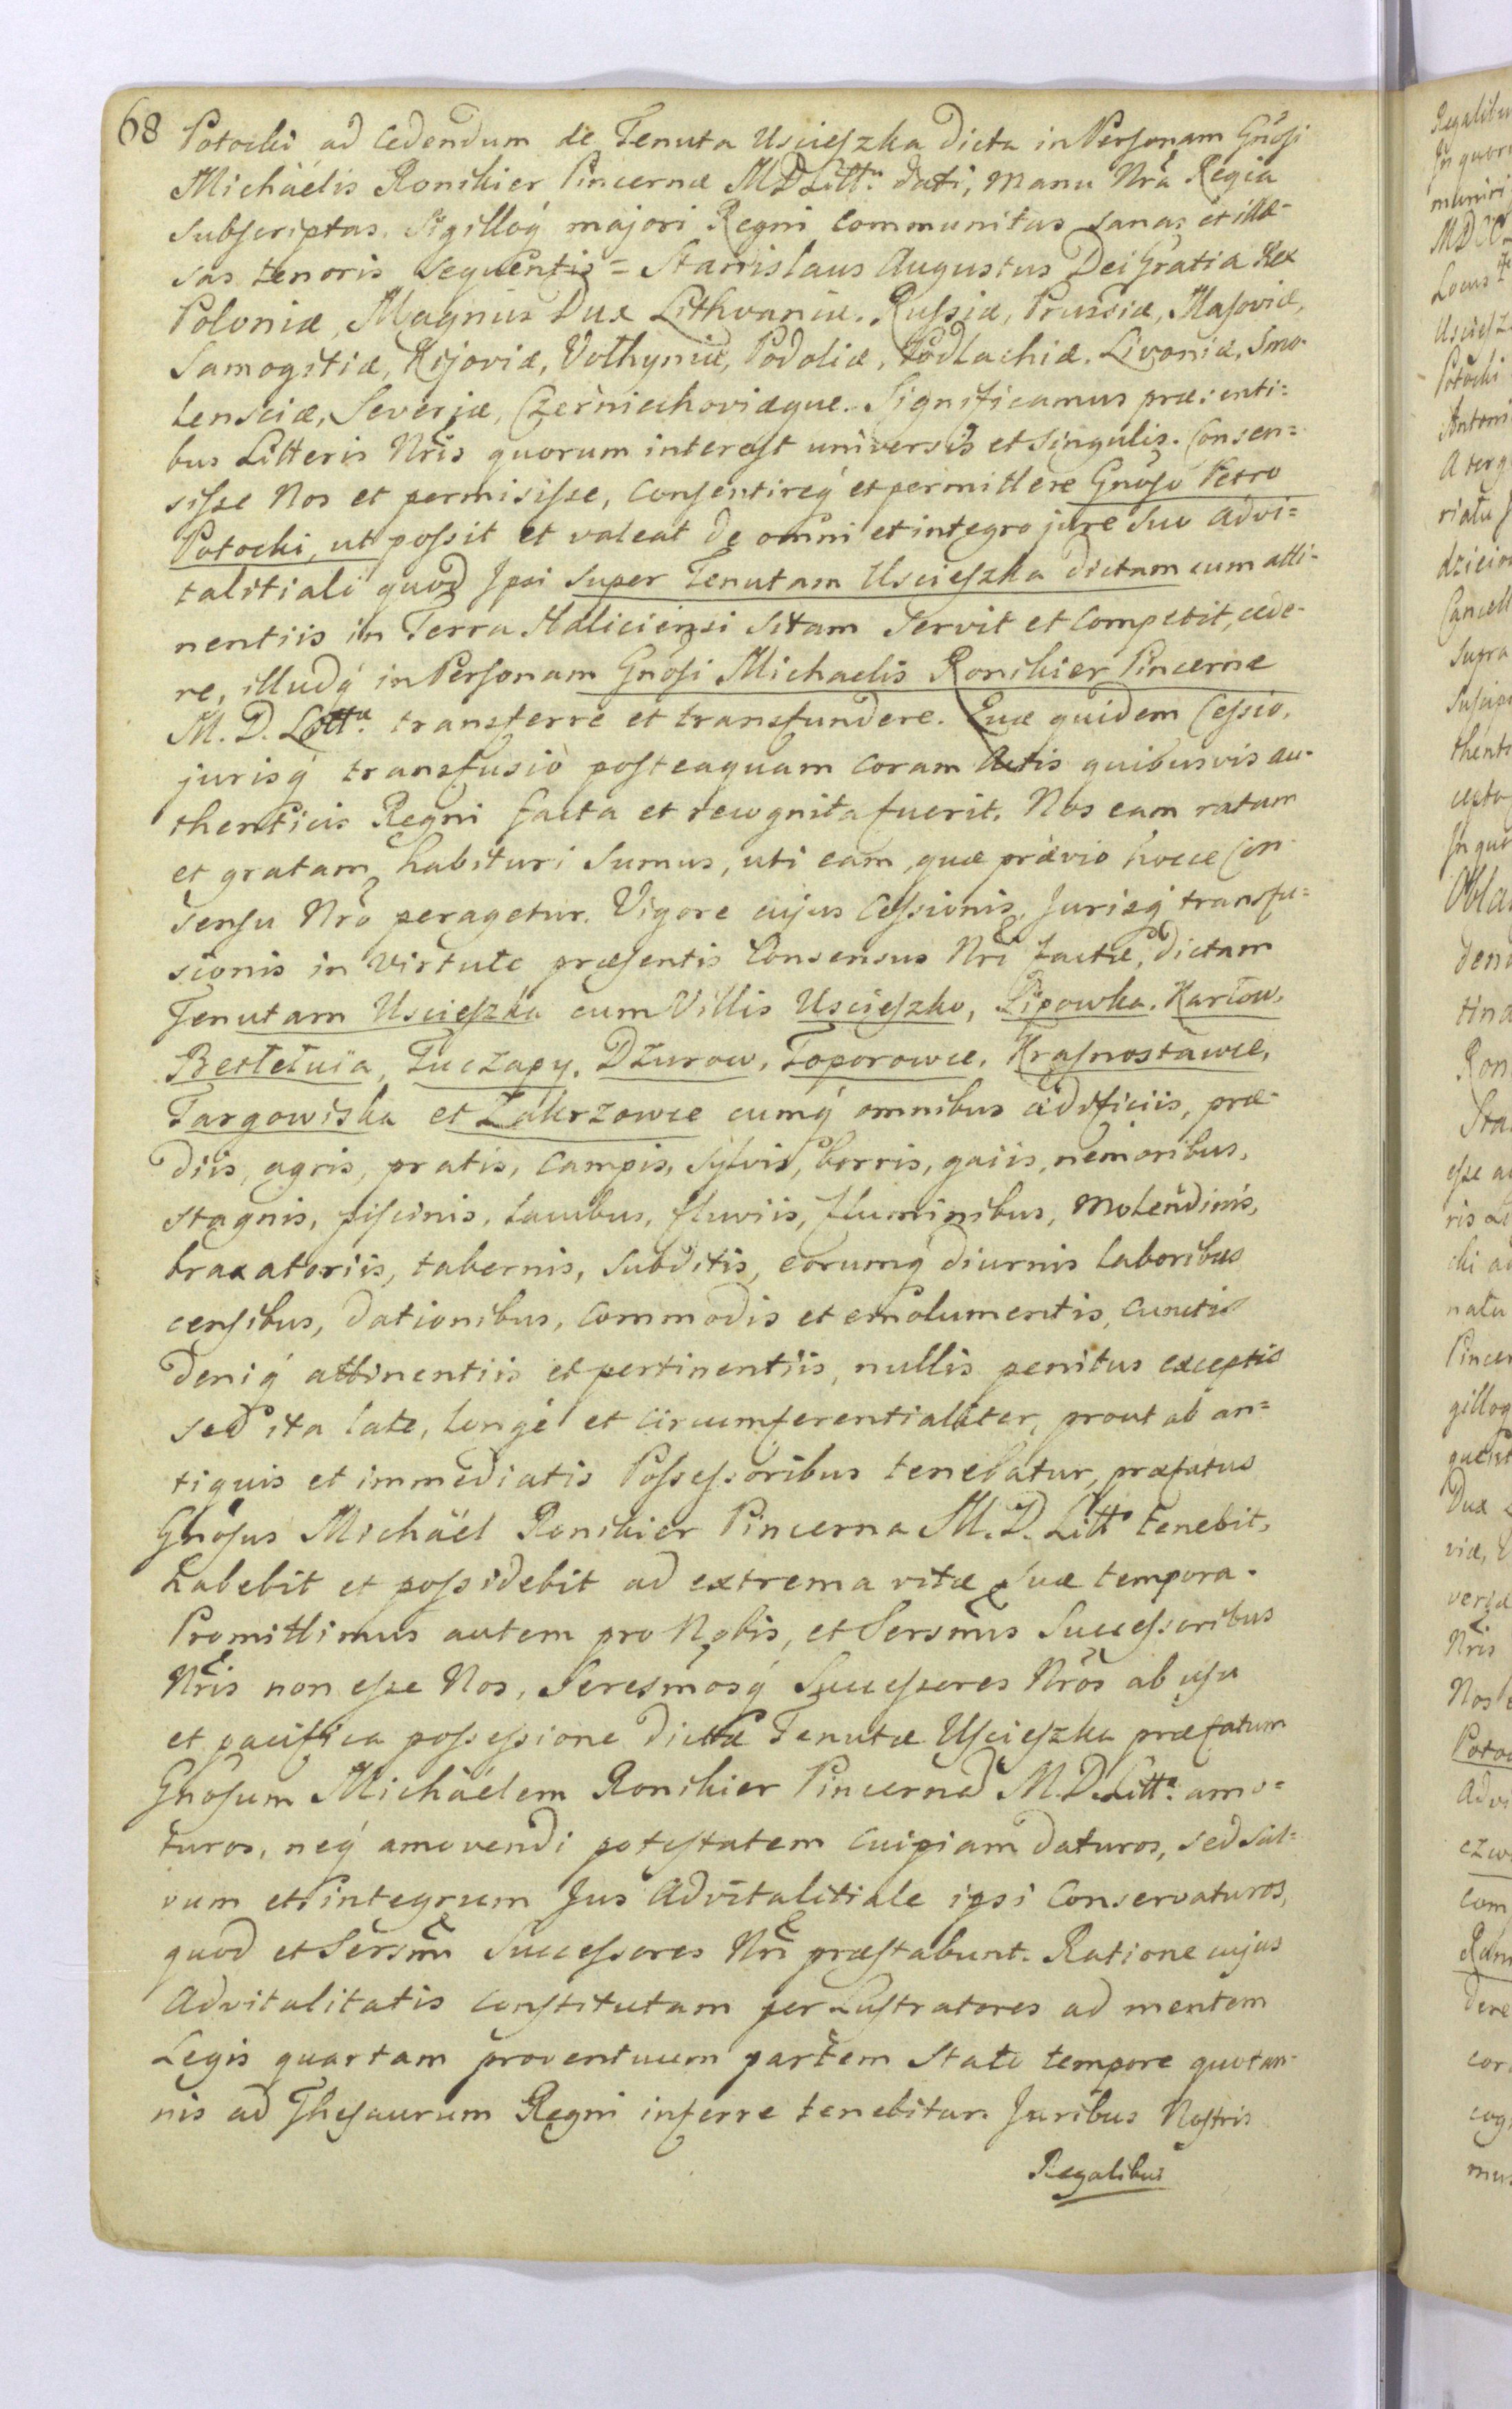 68 Potocki ad Cedendum de Tenuta Uscieszka dicta in Personam Gnosi
Michäelis Ronikier Pincernæ M D Litt. dati, manu Nrã Regia
subscriptas. Sigilloq́ majori Regni Communitas sanas et illæ-
sas tenoris sequentis = Stanislaus Augustus Dei Gratia Rex
Poloniæ, Magnus Dux Lithvaniæ. Russiæ, Prussiæ, Masoviæ,
Samogitiæ, Kijoviæ, Volhyniæ, Podoliæ, Podlachiæ. Livoniæ, Smo-
lensciæ, Severiæ, Czerniechoviæque. Significamus præsenti=
bus Litteris Nris quorum interest universis et singulis. Consen=
sisse Nos et permisisse, Consentireq́ et permittere Gnoso Petro
Potocki, ut possit et valeat de omni et integro jure suo advi=
talitiali quod Ipsi super Tenutam Uscieszka dictam cum atti-
nentiis in Terra Haliciensi sitam servit et Competit, cede-
re, illudq́ in Personam Gnosi Michaelis Ronikier Pincernæ
M. D. Litt. transferre et transfundere. Quæ quidem Cessio,
jurisq́ transfusio posteaquam coram Actis quibusvis au-
thenticis Regni facta et recognita fuerit, Nos eam ratam
et gratam habituri sumus, uti eam, quæ prævio hocce Con-
sensu Nrõ peragetur. Vigore cujus Cessionis, Jurisq́ transfu=
sionis in virtute præsentis Consensus Nri factæ, dictam
Tenutam Uscieszka cum Villis Uscieszko, Lipowka, Karłow,
Bełełuia, Tuczapy, Dżurow, Toporowce, Krasnostawce,
Targowiska et Zakrzowce cumq́ omnibus ædificiis, præ-
diis, agris, pratis, Campis, Sylvis, borris, gaiis, nemoribus,
stagnis, piscinis, lacubus, fluviis, fluminibus, molendinis,
braxatoriis, tabernis, subditis, eorumq́ diurnis laboribus
censibus, dationibus, Commodis et emolumentis, cunctis
deniq́ attinentiis et pertinentiis, nullis penitus exceptis
sed ita late, longè et circumferentialiter, prout ab an=
tiquis et immediatis Possessoribus tenebatur, præfatus
Gnosus Michäel Ronikier Pincerna M. D. Litt. tenebit,
habebit et possidebit ad extrema vitæ suæ tempora.
Promittimus autem pro Nobis, et Sersmis Successoribus
Nris non esse Nos, Seresmosq́ Successores Nros ab usu
et pacifica possessione dictæ Tenutæ Uscieszka præfatum
Gnosum Michäelem Ronikier Pincernã M. D. Litt. amo=
turos, neq́ amovendi potestatem cuipiam daturos, sed sal=
vum et integrum Jus Advitalitiale ipsi Conservaturos,
quod et Sersmi Successores Nri præstabunt. Ratione cujus
Advitalitatis Constitutam per Lustratores ad mentem
Legis quartam proventuum partem stato tempore quotan-
nis ad Thesaurum Regni inferre tenebitur. Juribus Nostris
Regalibus